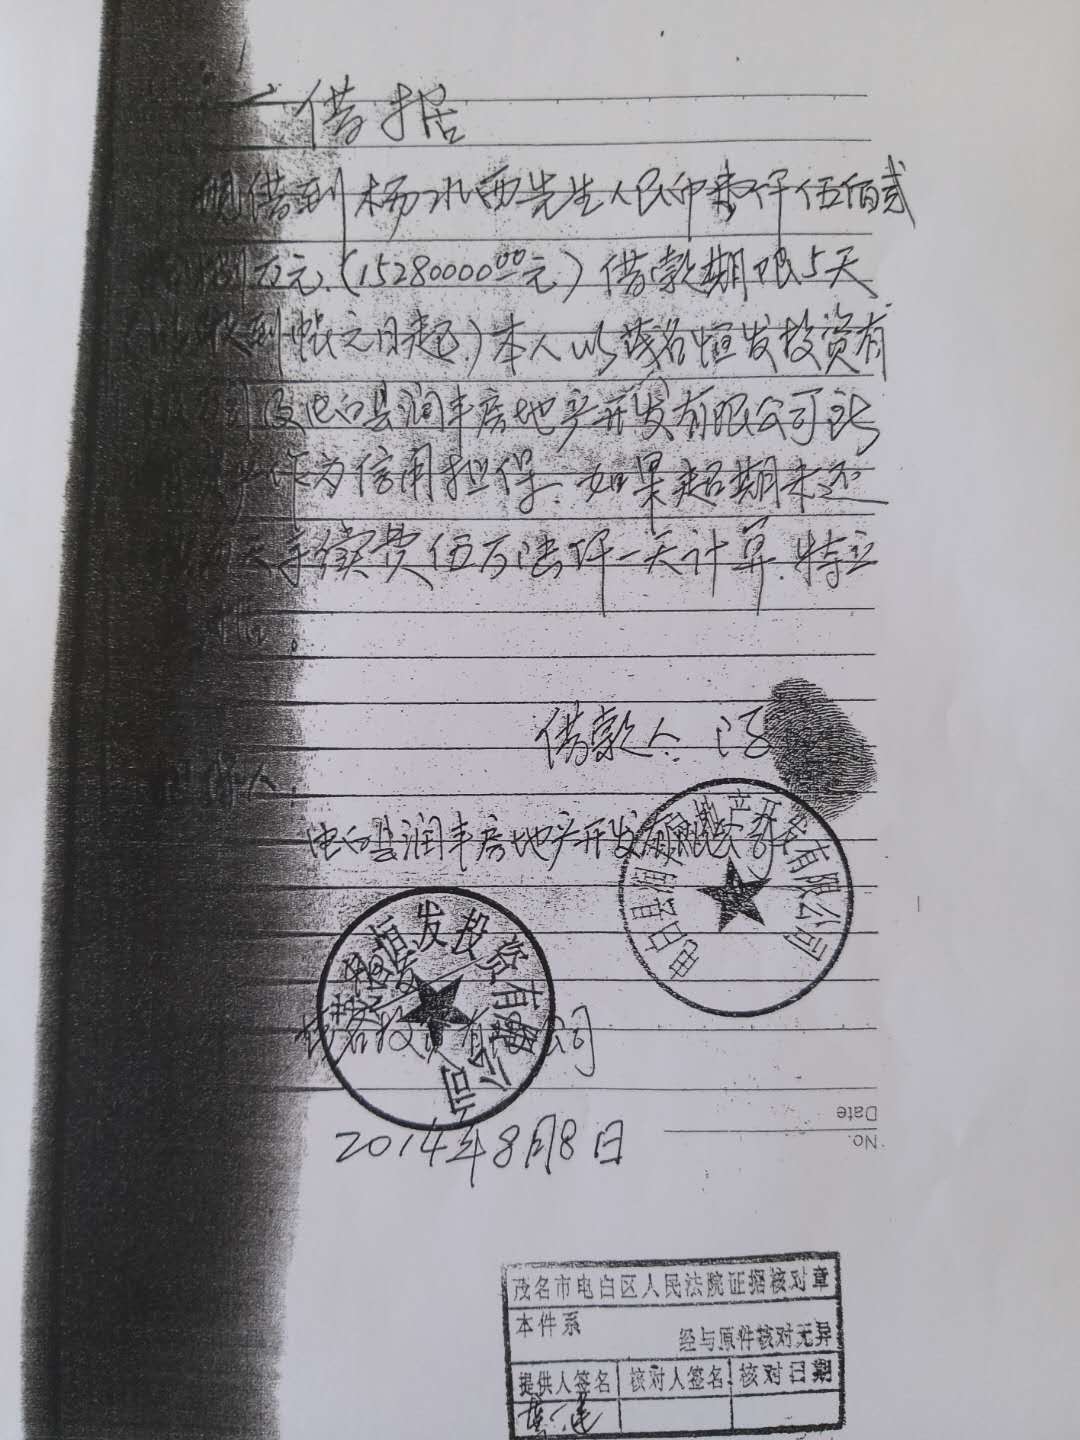 借据
现借到杨水西先生人民币壹仟伍佰贰
万元.(15280000.00元)借款期限5天
收到帐之日起.)本人以茂名恒发投资有
公司及电白县润丰房地产开发有限公司
作为信用担保.如果超期未还
天手续费伍万陆仟一天计算.特立
借款人.
担保人.
电白县润丰房地产开发有限公司
电白县润丰房地产开发有限公司
恒发投资有限公司
投资有限公司
2014年8月8日
Date
No.
茂名市电白区人民法院证据核对章
本件系
经与原件核对无异
提供人签名 核对人签名 核对日期